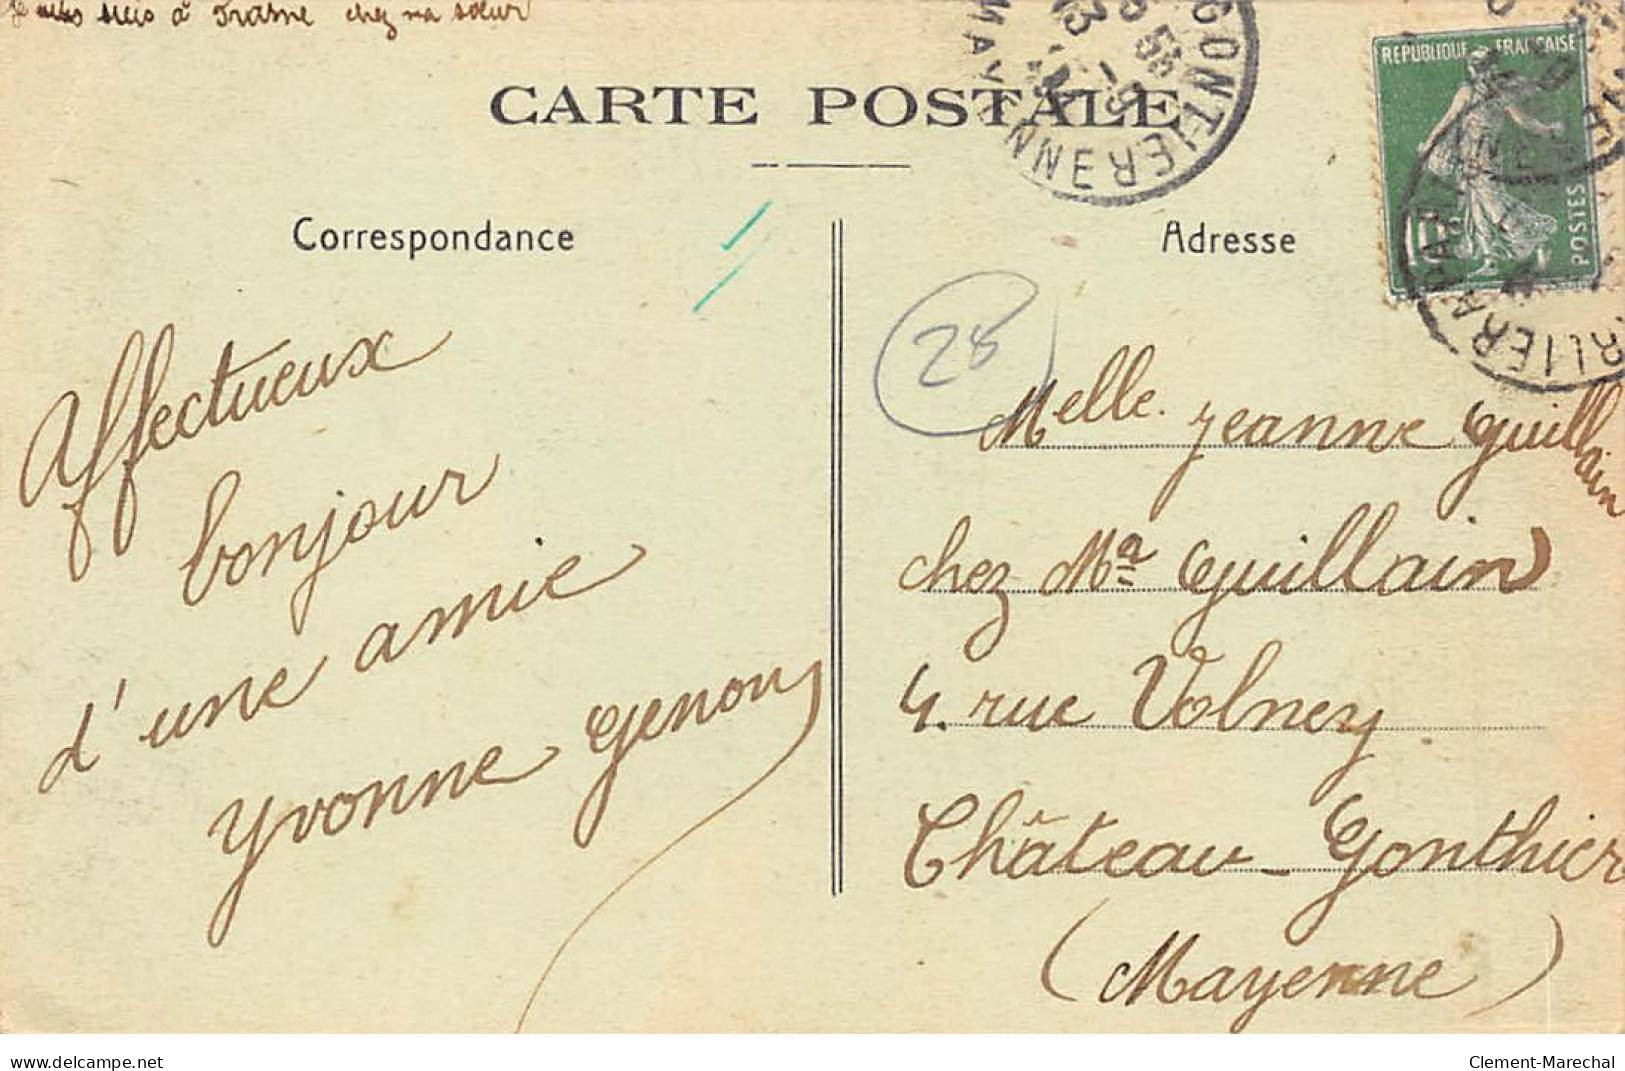 suis à chez ma sœur
CARTE POSTALE
GONTIER
MAYENNE
REPUBLIQUE FRANÇAISE
POSTES
Correspondance
Adresse
28
Affectueux
bonjour
d'une amie
Yvonne Genouy
Melle Jeanne Guillain
chez Ma Guillain
4. rue Volney
Château-Gonthier
(Mayenne)
www.delcampe.net
Clement-Marechal